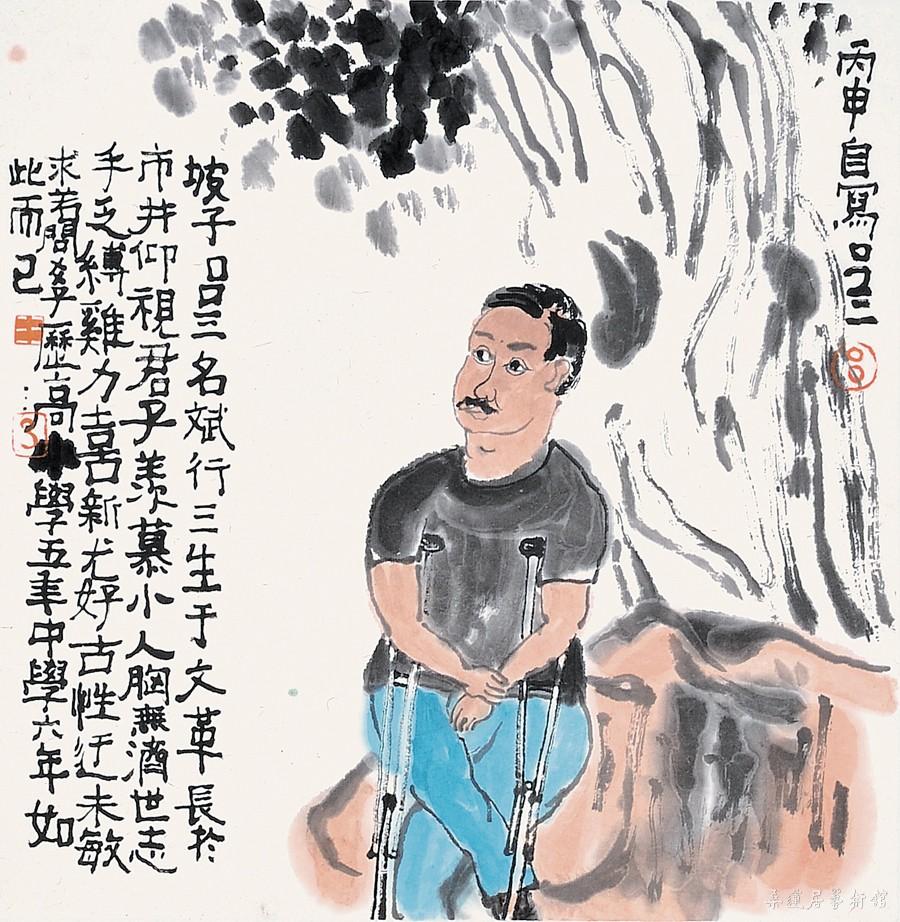 丙申自寫吕三
坡子吕三名斌行三生于文革長於
市井仰視君子羨慕小人胸無濟世志
手乏縛雞力喜新尤好古性迂未敏
求若問斈歷高小學五年中學六年如
此而已
桑蓮居藝術館